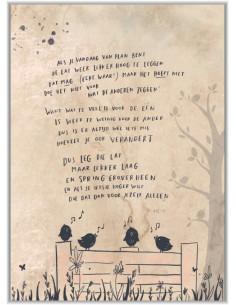 ALS JE VANDAAG VAN PLAN BENT
DE LAT WEER LEKKER HOOG TE LEGGEN
DAT MAG (ECHT WAAR!) MAAR HET HOEFT NIET
DOE HET NIET VOOR WAT DE ANDEREN ZEGGEN
WANT WAT TE VEEL IS VOOR DE EEN
IS WEER TE WEINIG VOOR DE ANDER
DUS IS ER ALTIJD WEL IETS MIS
HOEVEEL JE OOK VERANDERT
DUS LEG DIE LAT
MAAR LEKKER LAAG
EN SPRING EROVERHEEN
EN ALS JE IETSJE HOGER WILT
DOE DAT DAN VOOR JEZELF ALLEEN